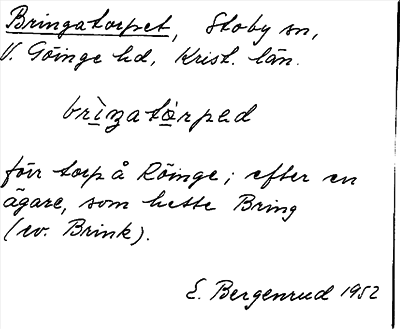 Bringatorpet, Stoby sn,
V. Göinge hd, Krist. län.
brìŋatò̤rpəd
förr torp å Röinge; efter en
ägare, som hette Bring
(ev. Brink).
E. Bergenrud 1952